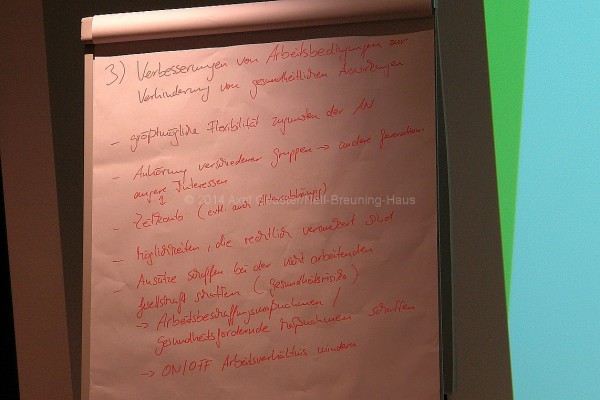 3) Verbesserungen von Arbeitsbedingungen zur
Verhinderung von gesundheitlichen
- größtmögliche Flexibilität zugunsten der AN
- Anhörung verschiedener Gruppen → andere Generation
andere Interessen
- Zeitkonto (evtl. auch Alterssicherung)
- Möglichkeiten, die rechtlich verankert sind
- Ansätze schaffen bei der nicht arbeitenden
Gesellschaft schaffen (Gesundheitsrisiko)
→ Arbeitsbeschaffungsmaßnahmen /
gesundheitsfördernde Maßnahmen schaffen
→ ON/OFF Arbeitsverhältnis mindern
© 2014 /Nell-Breuning-Haus